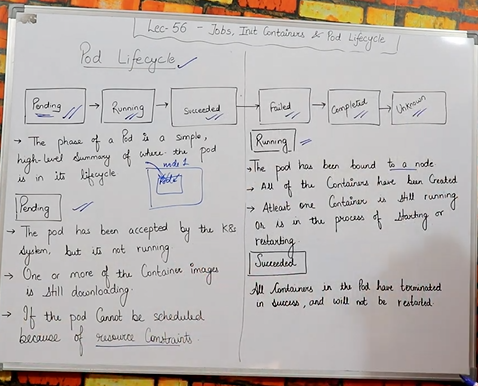 Lec-56 - Jobs, Init Containers & Pod Lifecycle
Pod Lifecycle
Pending
Running
Succeeded
Failed
Completed
Unknown
→ The phase of a Pod is a simple,
high-level summary of where the pod
is in its lifecycle
node 1
Pending
→ The pod has been accepted by the K8s
System, but its not running.
→ One or more of the Container images
is still downloading.
→ If the pod Cannot be scheduled
because of resource Constraints.
Running
→ The pod has been bound to a node
→ All of the Containers have been Created
→ Atleast one Container is still running
or is in the process of starting or
restarting.
Succeeded
All Containers in the Pod have terminated
in success, and will not be restarted.